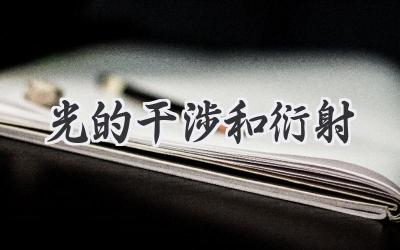 光的干涉和衍射